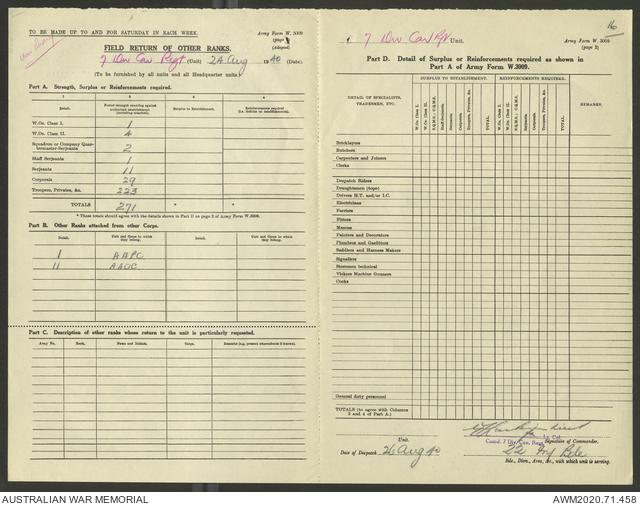 TO BE MADE UP TO AND FOR SATURDAY IN EACH WEEK.
Army Form W. 3009
(page 1)
(Adapted)
FIELD RETURN OF OTHER RANKS.
7 Div Cav Regt (Unit) 24 Aug 1940 (Date).
(To be furnished by all units and all Headquarter units.)
Part A. Strength, Surplus or Reinforcements required.
1 2 3 4
Detail.
Posted strength counting against authorized establishment (including attached).
Surplus to Establishment.
Reinforcements required
W.Os. Class I. 1
W.Os. Class II. 4
Squadron or Company Quartermaster-Serjeants 2
Staff Serjeants 1
Serjeants 11
Corporals 29
Troopers, Privates, &c. 223
TOTALS 271 * *
* These totals should agree with the details shown in Part D on page 2 of Army Form W.3009.
Part B. Other Ranks attached from other Corps.
Detail. Unit and Corps to which they belong. Detail. Unit and Corps to which they belong.
1 AAPC
11 AAOC
Part C. Description of other ranks whose return to the unit is particularly requested.
Army No. Rank. Name and Initials. Corps. Remarks (e.g., present whereabouts if known).
16
7 Div Cav Rgt Unit.
Army Form W. 3009
(page 2)
Part D. Detail of Surplus or Reinforcements required as shown in
Part A of Army Form W.3009.
DETAIL OF SPECIALISTS, TRADESMEN, ETC.
SURPLUS TO ESTABLISHMENT.
REINFORCEMENTS REQUIRED.
REMARKS.
W.Os. Class I.
W.Os. Class II.
S.Q.M.S.; C.Q.M.S.
Staff Serjeants.
Serjeants.
Corporals.
Troopers, Privates, &c.
TOTAL.
W.Os. Class I.
W.Os. Class II.
S.Q.M.S.; C.Q.M.S.
Staff Serjeants.
Serjeants.
Corporals.
Troopers, Privates, &c.
TOTAL.
Bricklayers
Butchers
Carpenters and Joiners
Clerks
Despatch Riders
Draughtsmen (topo)
Drivers H.T. and/or I.C.
Electricians
Farriers
Fitters
Masons
Painters and Decorators
Plumbers and Gasfitters
Saddlers and Harness Makers
Signallers
Storemen technical
Vickers Machine Gunners
Cooks
General duty personnel
TOTALS (to agree with Columns 3 and 4 of Part A.)
Lt. Col.
Comd. 7 Div. Cav. Regt.
Signature of Commander.
Unit.
22 Inf Bde
Date of Despatch 26 Aug 40
Bde., Divn., Area, &c., with which unit is serving.
AUSTRALIAN WAR MEMORIAL
AWM2020.71.458